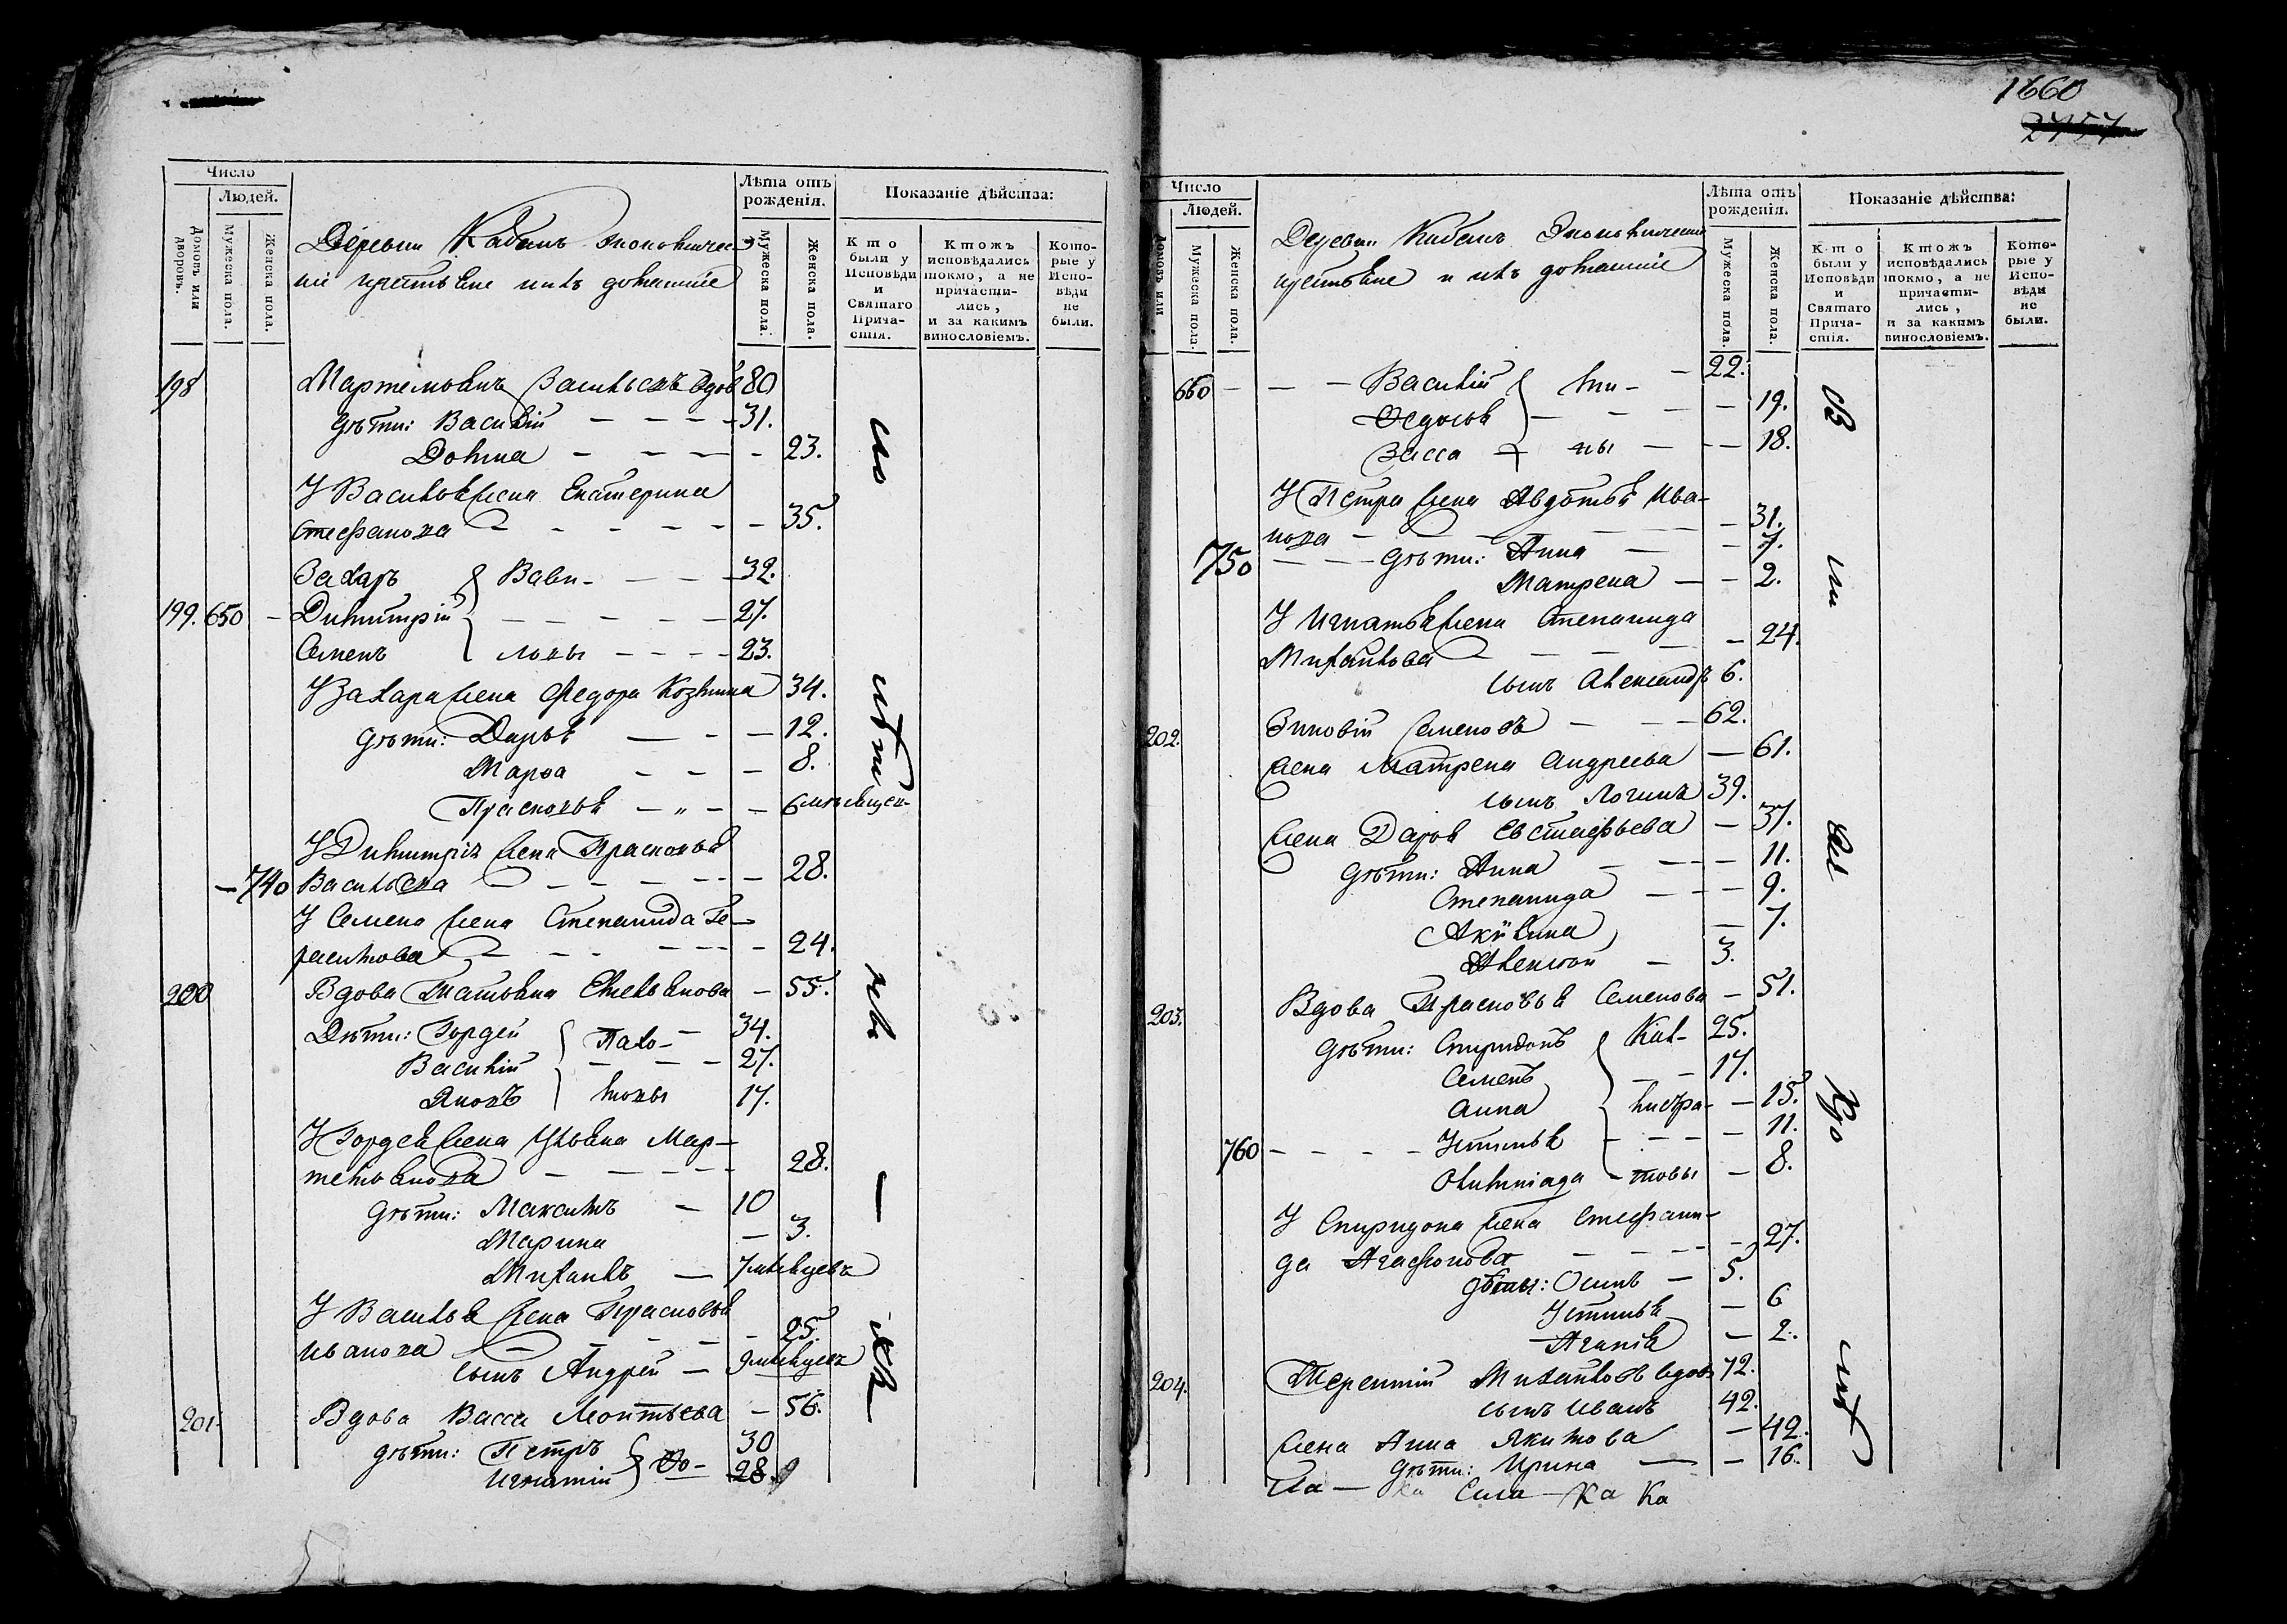 Число
Людей.
Домовъ или дворовъ.
Мужеска пола.
Женска пола.
Деревни Кабанъ Экономичес-
кіе крестьяне и ихъ домашніе
Лѣта отъ рожденія.
Мужеска пола.
Женска пола.
Показаніе дѣйства:
Кто были у Исповѣди и Святаго Прича-стія.
Ктожъ исповѣдались токмо, а не причасти-лись, и за какимъ винословіемъ.
Кото-рые у Испо-вѣди не были.
198 Васильевъ вдов 80
дѣти: Василій 31.
Домна 23.
У Василья жена Екатерина
Стефанова 35.
Захаръ Вави- 32.
199. 650 Димитрій 27.
Семенъ ловы 23.
У Захара жена Федора Козмина 34.
дѣти: Дарья 12.
Марѳа 8.
Прасковья 6 мѣсяцев-
У Димитрія жена Прасковья
740 Васильева 28.
У Семена жена Степанида Ге-
расимова 24.
200 Вдова Татьяна Емельянова 55.
Дѣти: Гордей Пахо- 34.
Василій 27.
Яковъ мовы 17.
У Гордея жена Ульяна Мар-
темьянова 28.
дѣти: Максимъ 10
Марина 3.
Михаилъ 7 мѣсяцевъ
У Василья жена Прасковья
Иванова 25.
сынъ Андрей 9 мѣсяцевъ
201. Вдова Васса Леонтьева 56.
дѣти: Петръ Ѳо- 30
Игнатій 28.
1660
Число
Людей.
Домовъ или
Мужеска пола.
Женска пола.
Деревни Кабанъ Экономическіе
крестьяне и ихъ домашніе
Лѣта отъ рожденія.
Мужеска пола.
Женска пола.
Показаніе дѣйства:
Кто были у Исповѣди и Святаго Прича-стія.
Ктожъ исповѣдались токмо, а не причасти-лись, и за какимъ винословіемъ.
Кото-рые у Испо-вѣди не были.
660 Василій ми- 22.
Федосья 19.
Васса ны 18.
У Петра жена Авдотья Ива-
нова 31.
750 дѣти: Анна 7.
Матрена 2.
У Игнатья жена Степанида
Михайлова 24.
сынъ Александръ 6.
202. Зиновій Семеновъ 62.
жена Матрена Андреева 61.
сынъ Логинъ 39.
жена Дарья Евстафьева 37.
дѣти: Анна 11.
Степанида 9.
Акилина 7.
Алексѣй 3.
203. Вдова Прасковья Семенова 51.
дѣти: Спиридонъ Кал- 25.
Семенъ 17.
Анна листра- 15.
760 Устинья 11.
Олимпіада товы 8.
У Спиридона жена Стефани-
да Агафонова 27.
дѣти: Осипъ 5.
Устинья 6
Агапія 2.
204. Терентій Михайловъ вдов 72.
сынъ Иванъ 42.
жена Анна Якимова 42.
дѣти: Ирина 16.